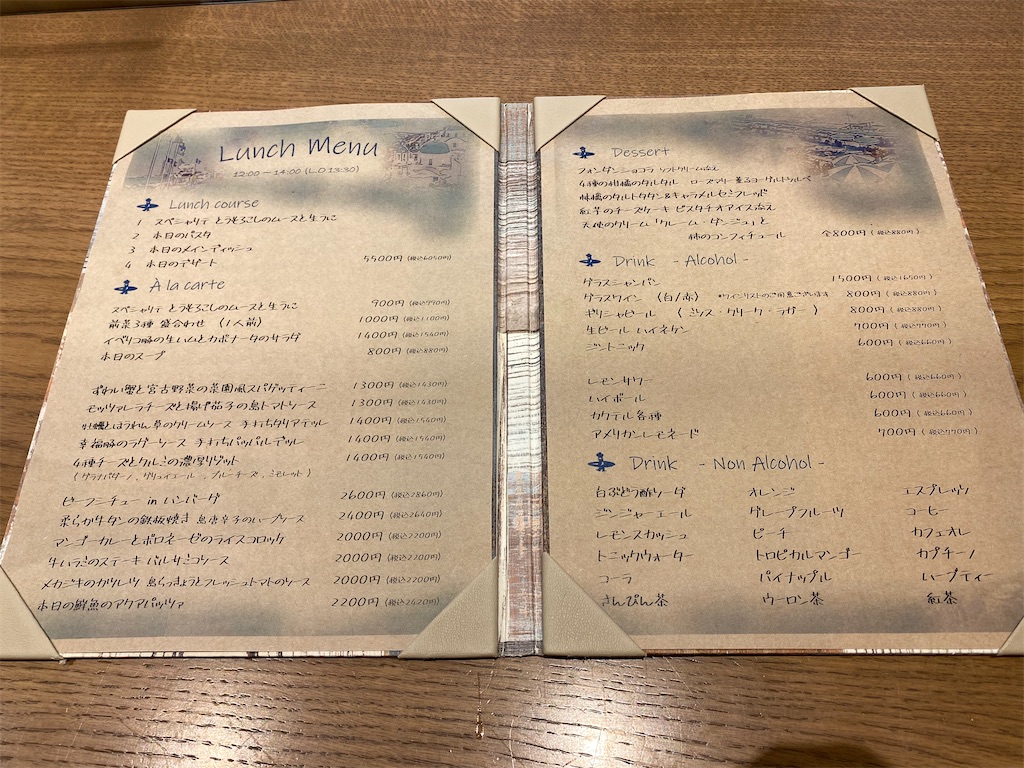 Lunch Menu
12:00－14:00 (L.O 13:30)
Lunch course
1 スペシャリテ とうもろこしのムースと生うに
2 本日のパスタ
3 本日のメインディッシュ
4 本日のデザート 5500円 (税込6050円)
À la carte
スペシャリテ とうもろこしのムースと生うに 900円 (税込990円)
前菜3種 盛合わせ (1人前) 1000円 (税込1100円)
イベリコ豚の生ハムとカポナータのサラダ 1400円 (税込1540円)
本日のスープ 800円 (税込880円)
ずわい蟹と宮古野菜の菜園風スパゲッティーニ 1300円 (税込1430円)
モッツァレラチーズと揚げ茄子の島トマトソース 1300円 (税込1430円)
牡蠣とほうれん草のクリームソース 手打ちタリアテッレ 1400円 (税込1540円)
幸福豚のラグーソース 手打ちパッパルデッレ 1400円 (税込1540円)
4種チーズとクルミの濃厚リゾット 1400円 (税込1540円)
(グラナパダーノ、グリュイエール、ブルーチーズ、ミモレット)
ビーフシチュー in ハンバーグ 2600円 (税込2860円)
柔らか牛タンの鉄板焼き 島唐辛子のハーブソース 2400円 (税込2640円)
マンゴーカレーとボロネーゼのライスコロッケ 2000円 (税込2200円)
牛ハラミのステーキ バルサミコソース 2000円 (税込2200円)
メカジキのカツレツ 島らっきょうとフレッシュトマトのソース 2000円 (税込2200円)
本日の鮮魚のアクアパッツァ 2200円 (税込2420円)
Dessert
フォンダンショコラ ソフトクリーム添え
4種の柑橘のタルタル ローズマリー薫るヨーグルトソルベ
林檎のタルトタタン&キャラメルセミフレッド
紅芋のチーズケーキ ピスタチオアイス添え
天使のクリーム「クレーム・ダンジュ」と
柿のコンフィチュール 全800円 (税込880円)
Drink - Alcohol -
グラスシャンパン 1500円 (税込1650円)
グラスワイン (白/赤) *ワインリストのご用意ございます 800円 (税込880円)
ギリシャビール (ミソス・グリーク・ラガー) 800円 (税込880円)
生ビール ハイネケン 700円 (税込770円)
ジントニック 600円 (税込660円)
レモンサワー 600円 (税込660円)
ハイボール 600円 (税込660円)
カクテル各種 600円 (税込660円)
アメリカンレモネード 700円 (税込770円)
Drink - Non Alcohol -
白ぶどう酢ソーダ オレンジ エスプレッソ
ジンジャーエール グレープフルーツ コーヒー
レモンスカッシュ ピーチ カフェオレ
トニックウォーター トロピカルマンゴー カプチーノ
コーラ パイナップル ハーブティー
さんぴん茶 ウーロン茶 紅茶